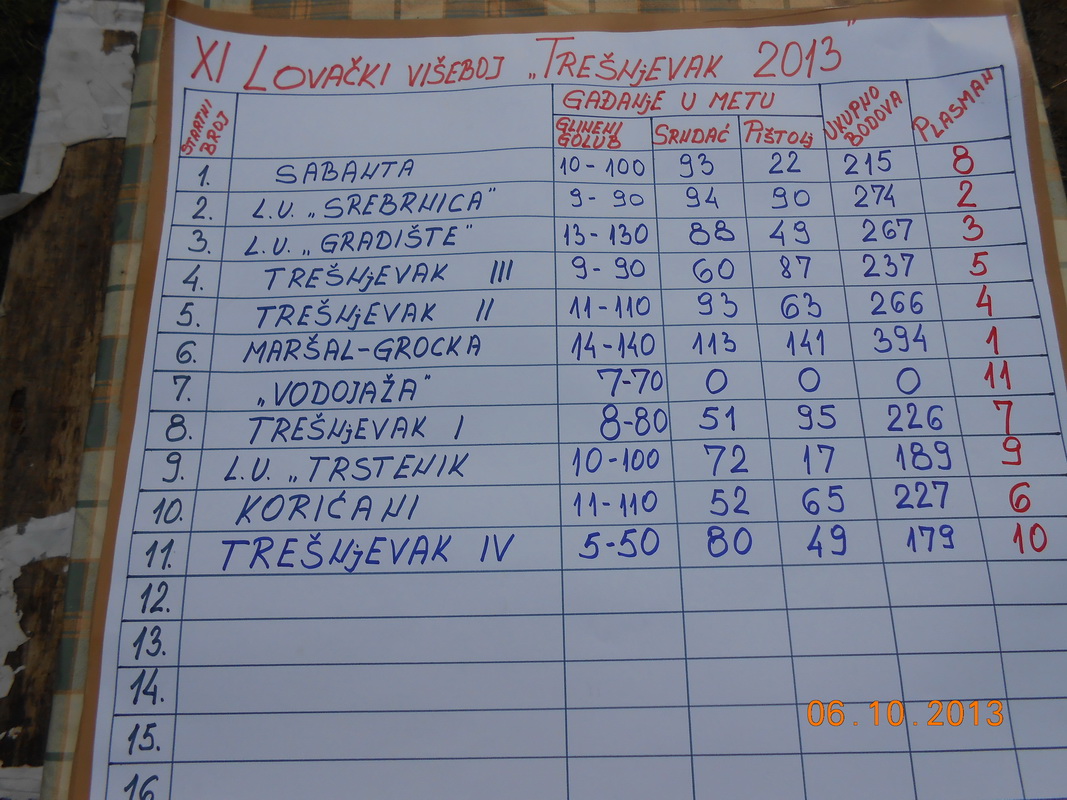 XI LOVAČKI VIŠEBOJ „TREŠNjEVAK 2013"
STARTNI BROJ GAĐANjE U METU UKUPNO BODOVA PLASMAN
GLINENI GOLUB SRNDAĆ PIŠTOLj
1. SABANTA 10-100 93 22 215 8
2. L.U. „SREBRNICA" 9-90 94 90 274 2
3. L.U. „GRADIŠTE" 13-130 88 49 267 3
4. TREŠNjEVAK III 9-90 60 87 237 5
5. TREŠNjEVAK II 11-110 93 63 266 4
6. MARŠAL-GROCKA 14-140 113 141 394 1
7. „VODOJAŽA" 7-70 0 0 0 11
8. TREŠNjEVAK I 8-80 51 95 226 7
9. L.U. „TRSTENIK 10-100 72 17 189 9
10. KORIĆANI 11-110 52 65 227 6
11. TREŠNjEVAK IV 5-50 80 49 179 10
12.
13.
14.
15.
16
06.10.2013